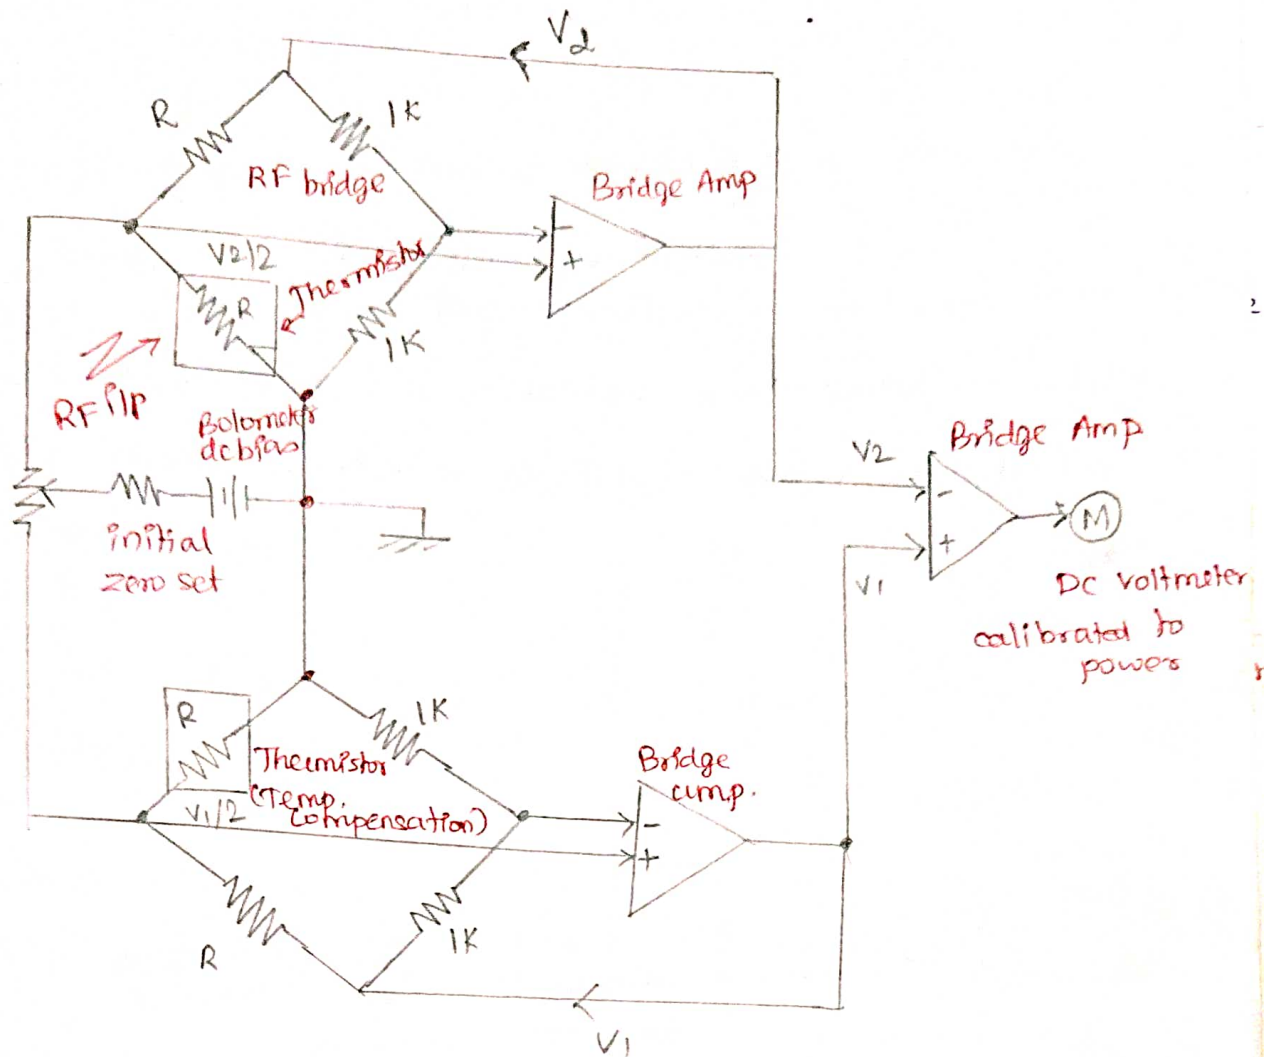 V2
R
1K
RF bridge
Bridge Amp
V2/2
Thermistor
-
+
R
1K
RF i/p
Bolometer
dc bias
V2
Bridge Amp
-
+
M
initial
zero set
V1
DC voltmeter
calibrated to
power
R
1K
Thermistor
(Temp.
compensation)
V1/2
Bridge
amp.
-
+
R
1K
V1